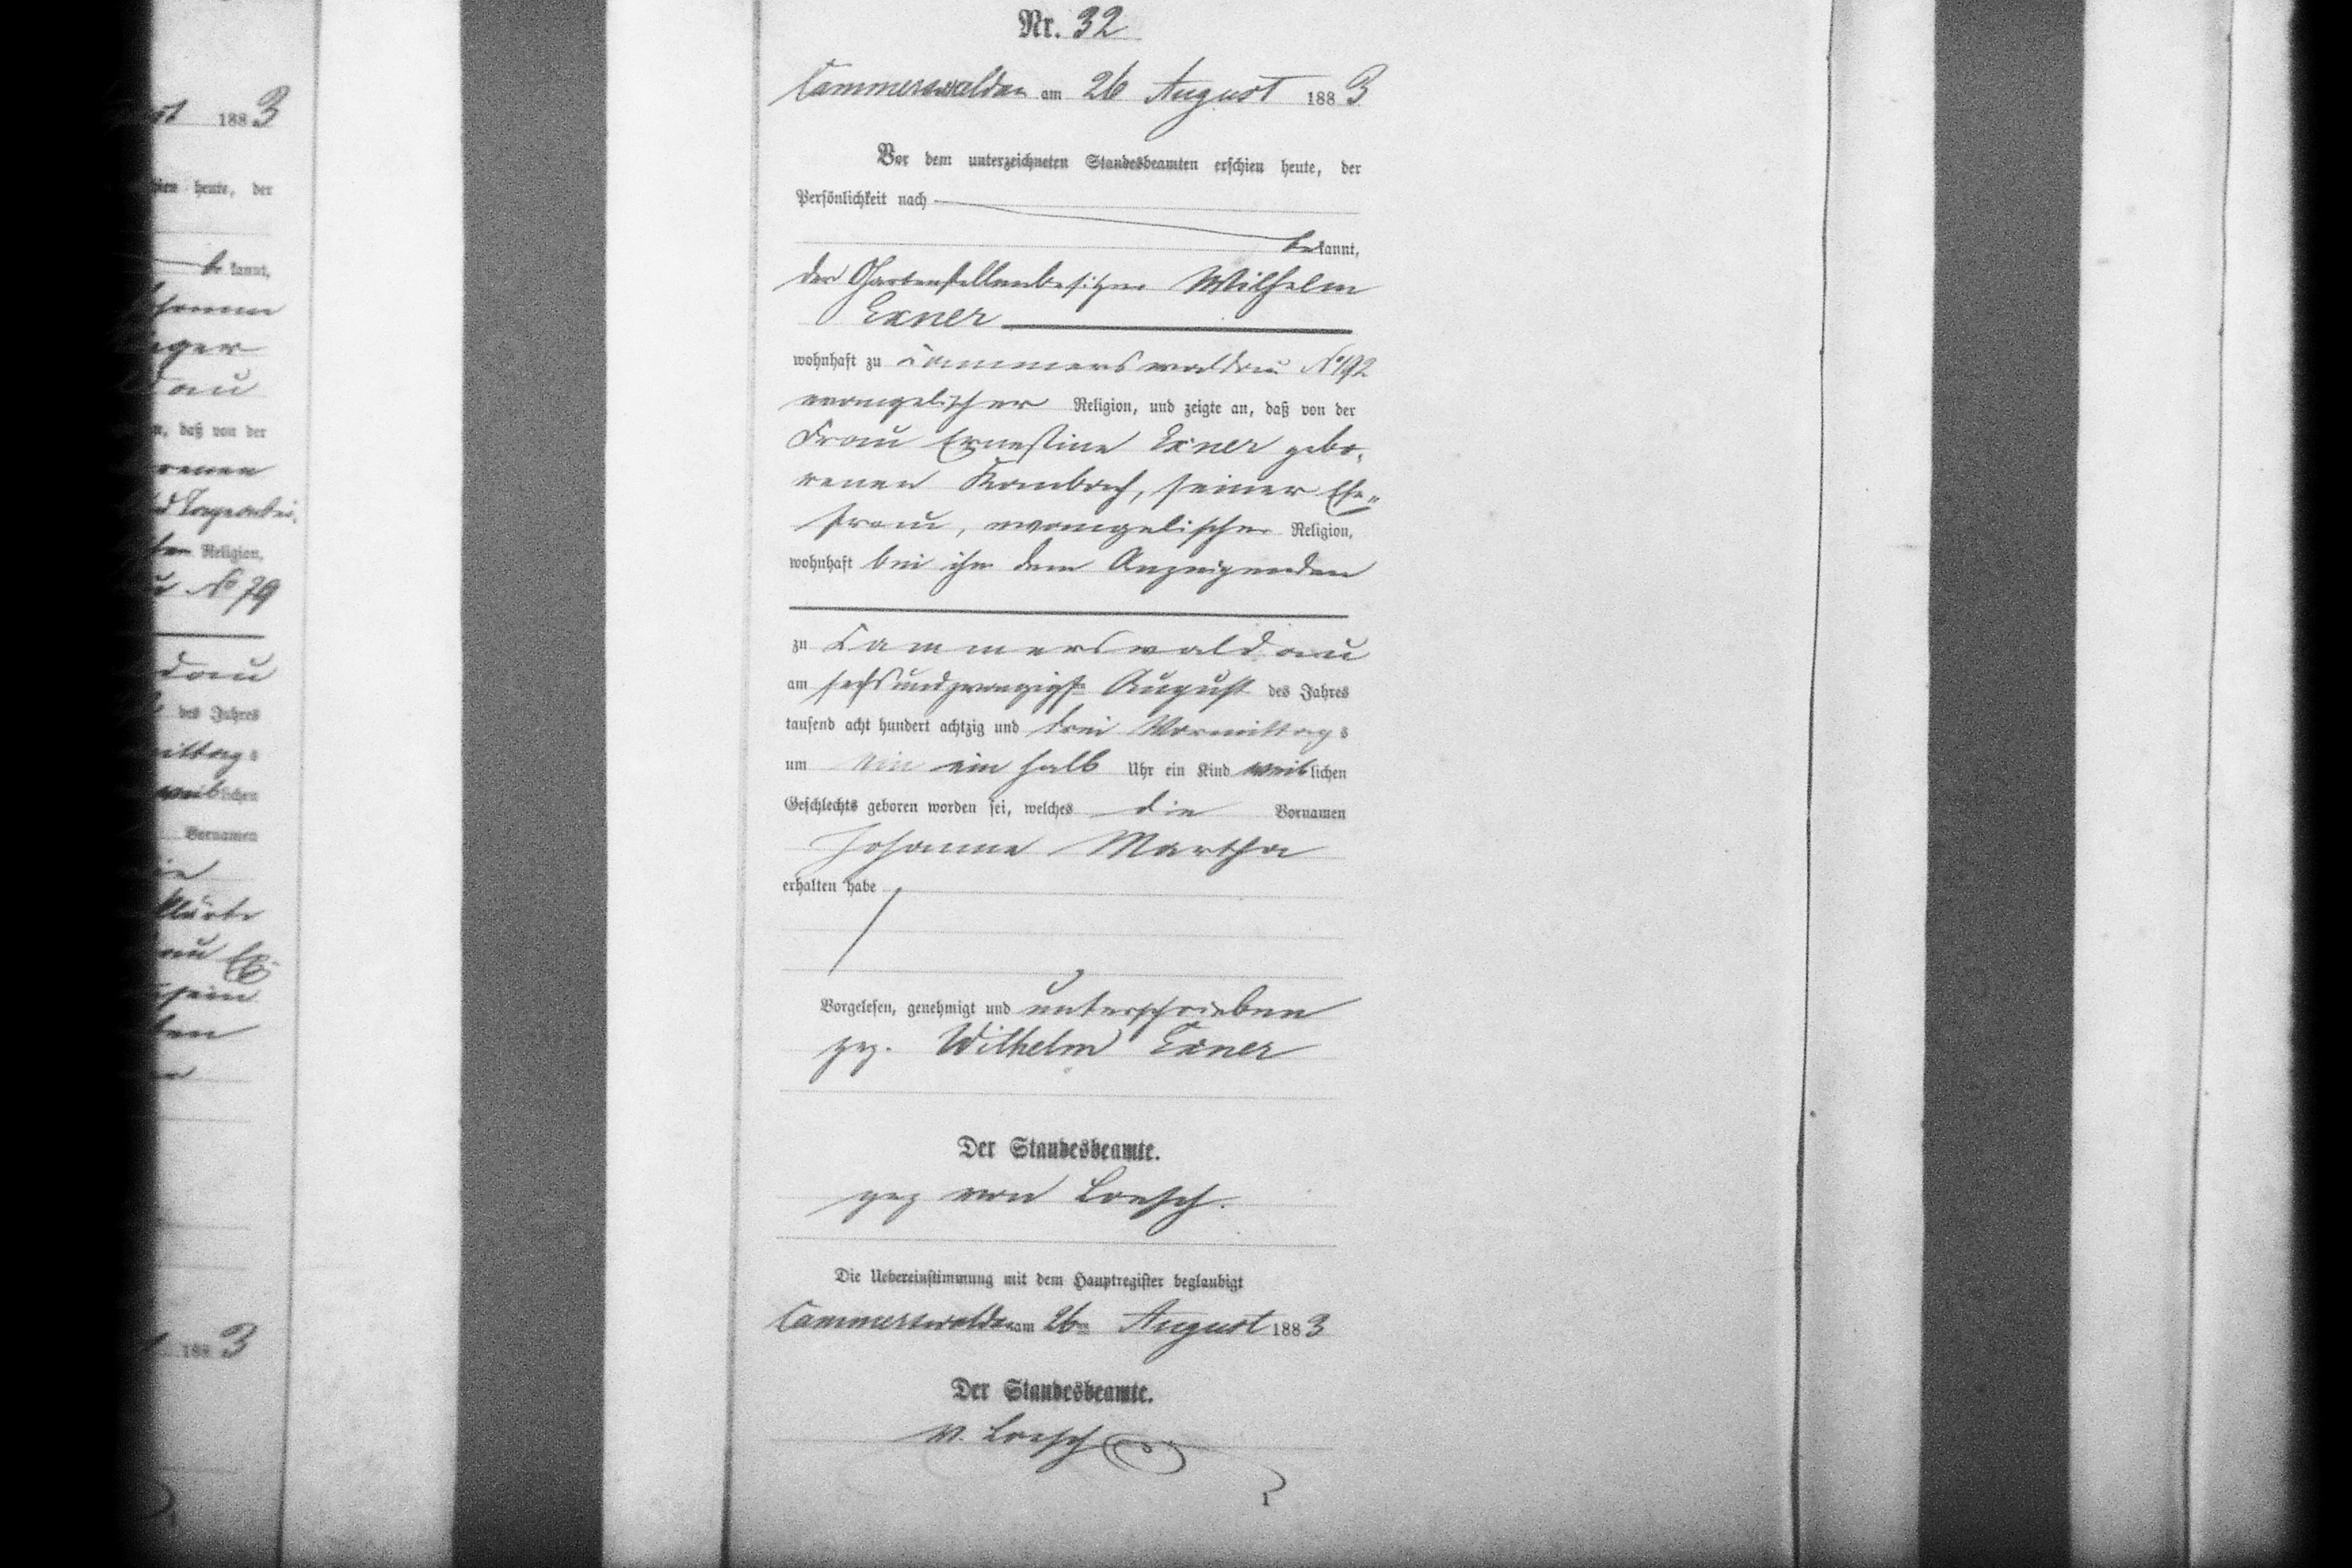 Nr. 32
Cammerswaldau am 26 August 1883
Vor dem unterzeichneten Standesbeamten erschien heute, der
Persönlichkeit nach
bekannt,
der Gartenstellenbesitzer Wilhelm
Exner
wohnhaft zu Cammerswaldau No 192
evangelischer Religion, und zeigte an, daß von der
Frau Ernestine Exner gebo-
renen Kambach, seiner Ehe-
frau, evangelischer Religion,
wohnhaft bei ihm dem Anzeigenden
zu Cammerswaldau
am sechsundzwanzigsten August des Jahres
tausend acht hundert achtzig und drei Vormittags
um ein halb Uhr ein Kind weiblichen
Geschlechts geboren worden sei, welches die Vornamen
Johanne Martha
erhalten habe
Vorgelesen, genehmigt und unterschrieben
gez. Wilhelm Exner
Der Standesbeamte.
gez von Loesch.
Die Uebereinstimmung mit dem Hauptregister beglaubigt
Cammerswaldau am 26ten August 1883
Der Standesbeamte.
v. Loesch
1883
heute, der
bekannt,
dau
daß von der
renen
Religion,
No 79
dau
des Jahres
mittags
weiblichen
Vornamen
1883